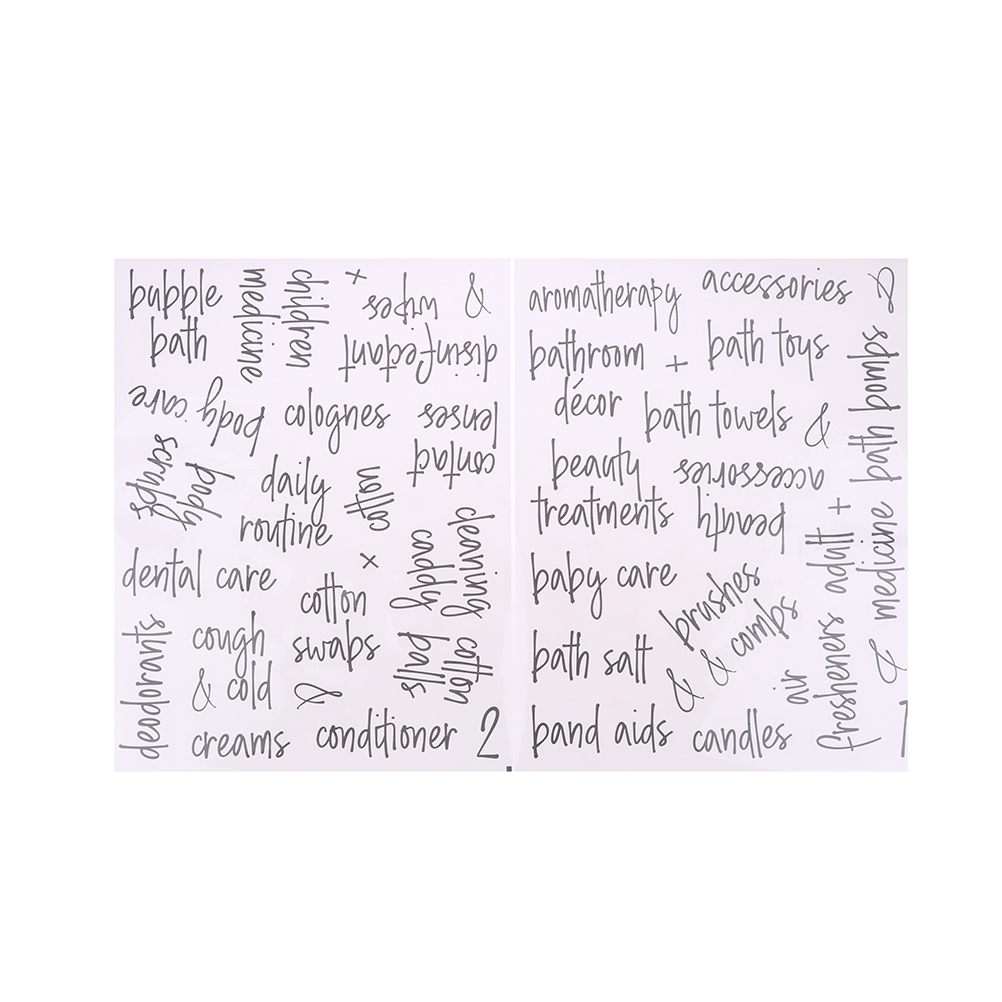 bubble
bath
children
medicine
+
&
disinfectant
wipes
body care
colognes
contact
lenses
body
scrubs
daily
routine
cotton
+
cleaning
caddy
dental care
cotton
swabs
cotton
balls
deodorants
cough
& cold
&
creams
conditioner
2
aromatherapy
accessories
&
bathroom
décor
+
bath toys
bath bombs
bath towels
&
beauty
treatments
beauty
accessories
adult +
medicine
&
baby care
brushes
& combs
&
bath salt
air
fresheners
band aids
candles
1